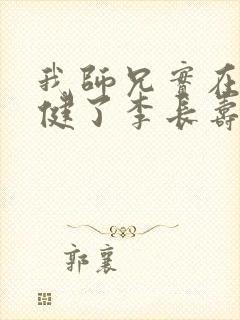 我師兄實在
健了李長壽
郭襄